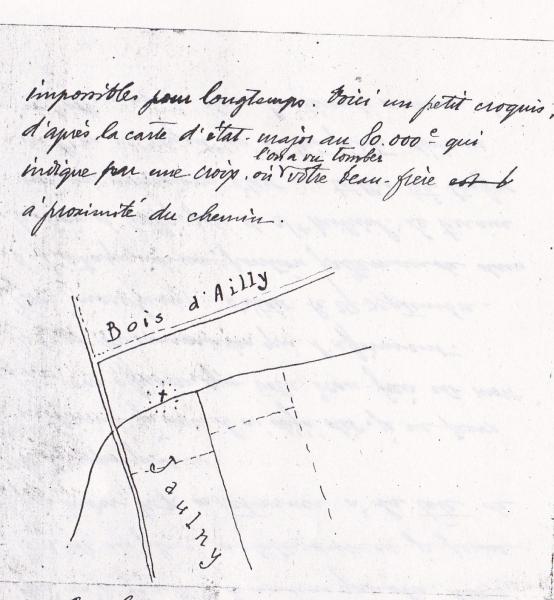 impossibles pour longtemps. Voici un petit croquis,
d'après la carte d'état-major au 80.000e qui
l'on a vu tomber
indique par une croix, où votre beau-frère est
à proximité du chemin.
Bois d'Ailly
+
Saulny